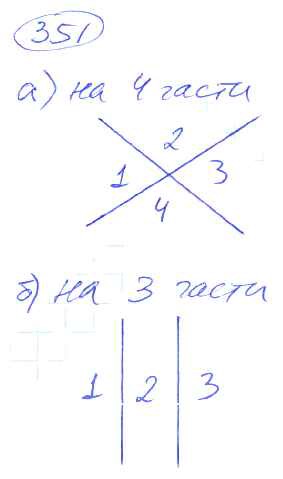 351
а) на 4 части
2
1 3
4
б) на 3 части
1 2 3